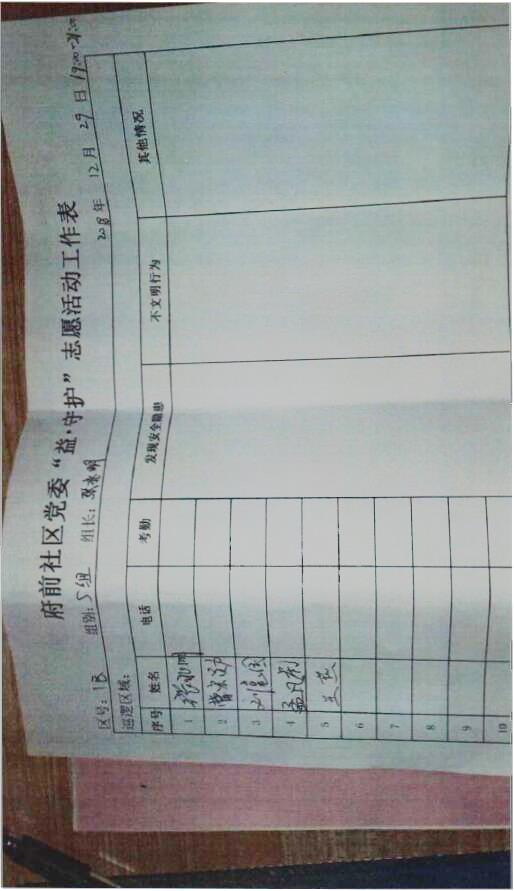 府前社区党委“益·守护”志愿活动工作表
区号：1B 组别：5组 组长： 2018年 12月 29日 19:00-21:00
巡逻区域：
序号 姓名 电话 考勤 发现安全隐患 不文明行为 其他情况
1
2
3
4
5
6
7
8
9
10